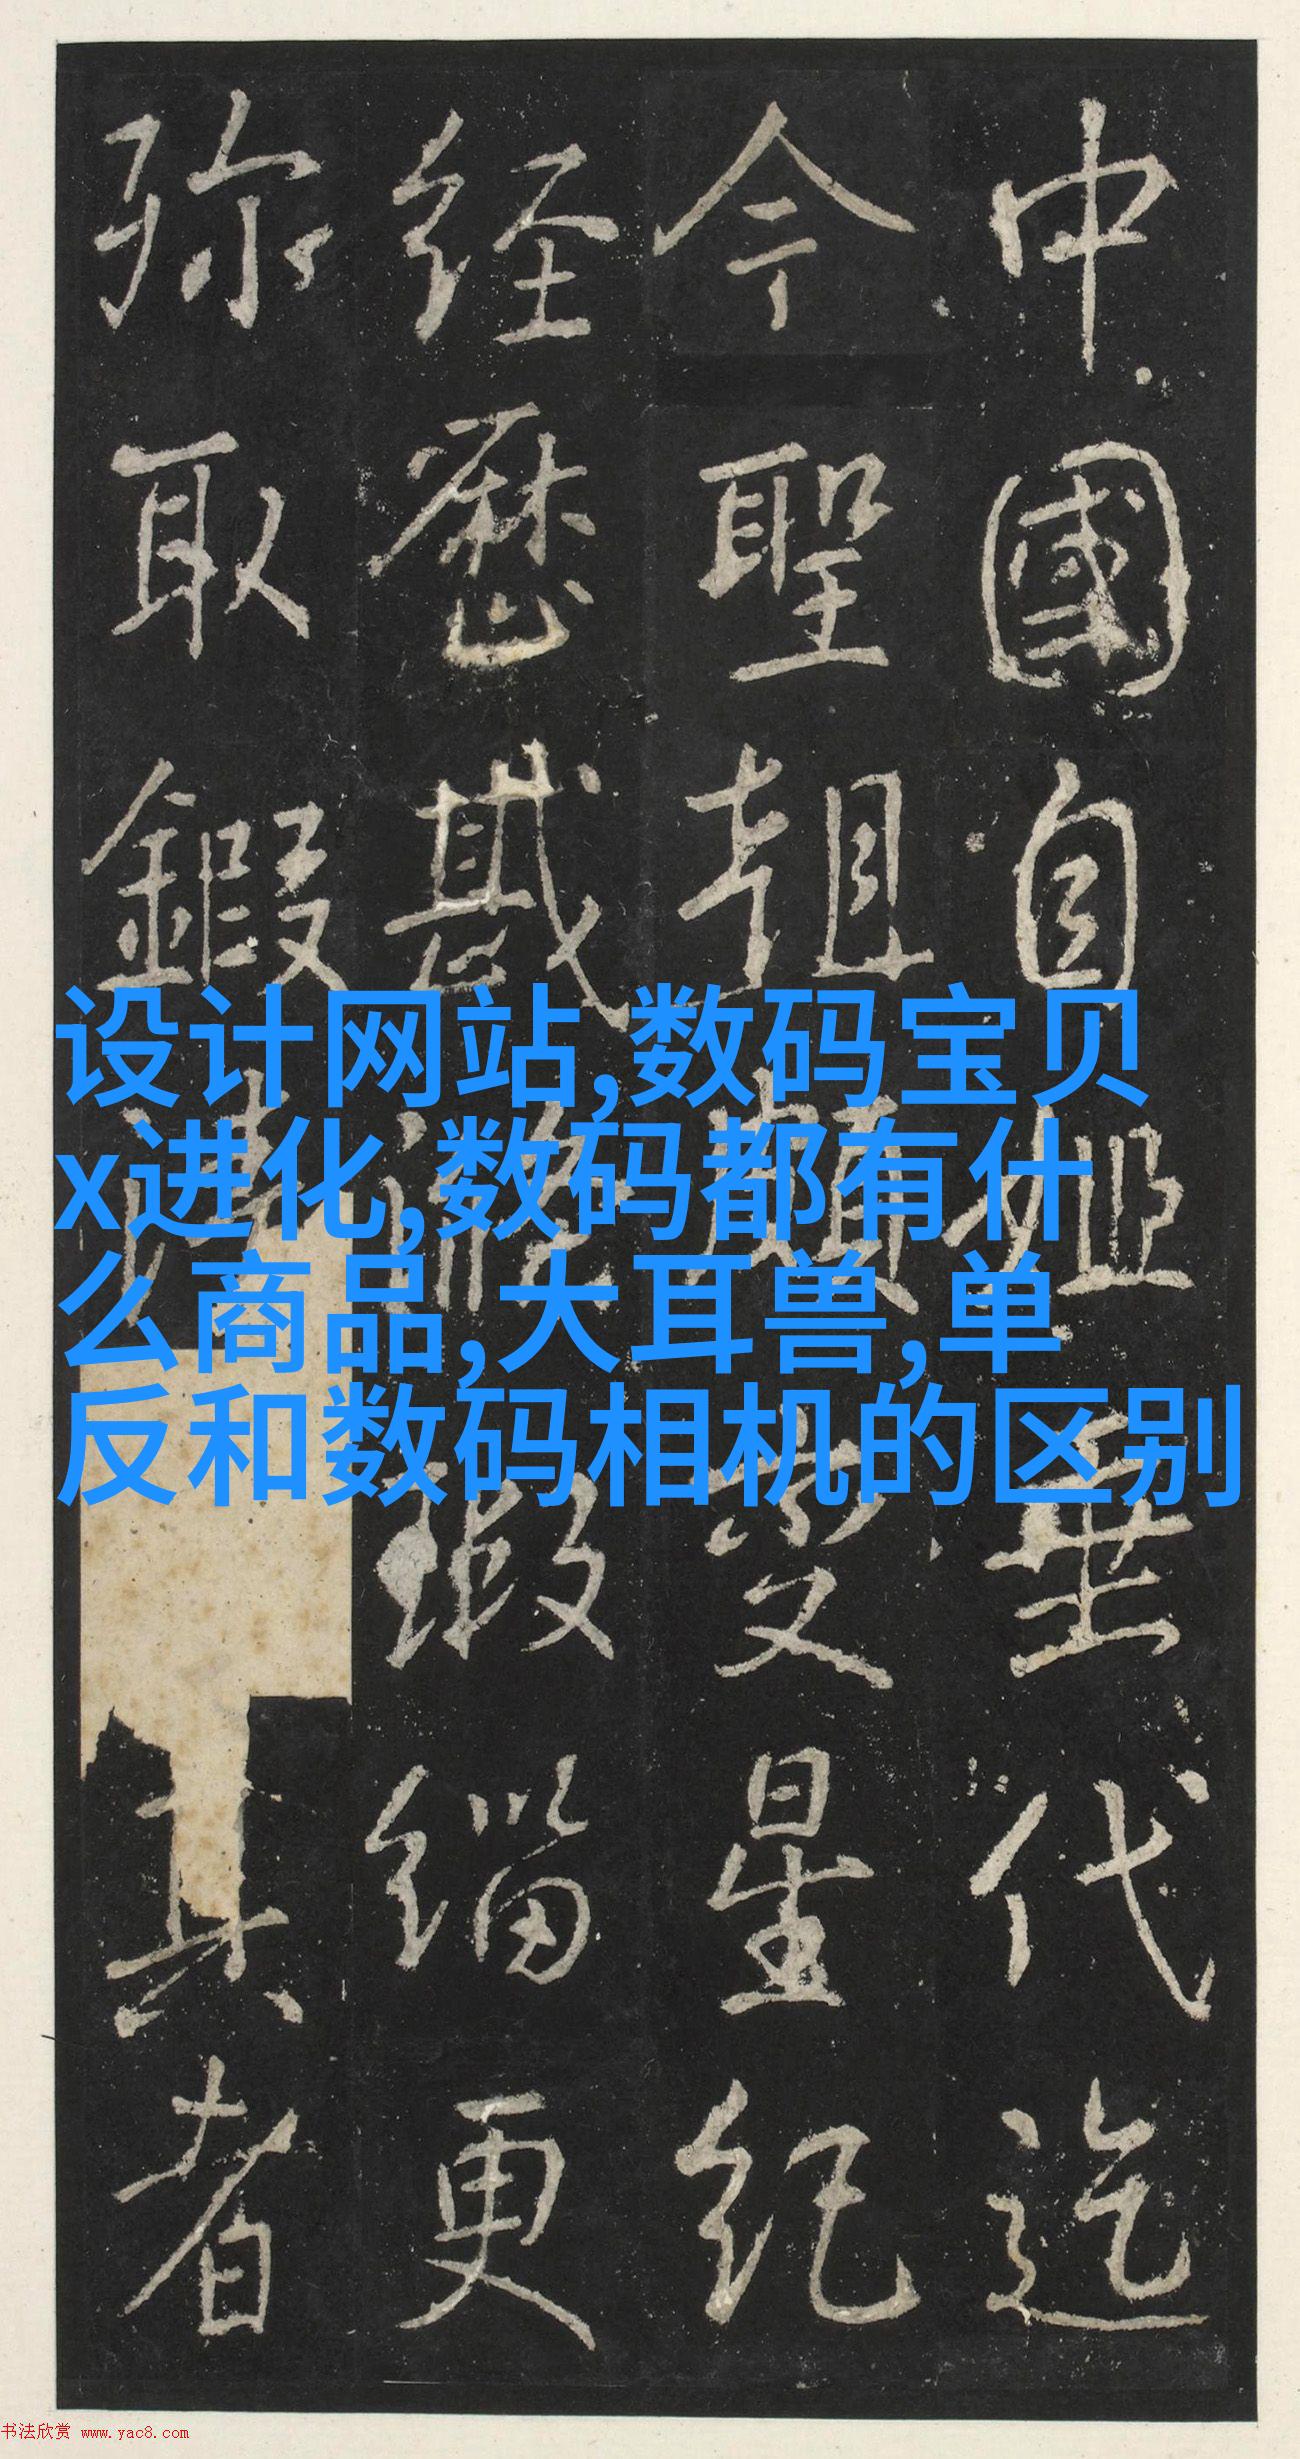 中國自代迄
今聖朝星紀
经歷瑕緇更
弥取鍜真者
设计网站,数码宝贝
x进化,数码都有什
么商品,大耳兽,单
反和数码相机的区别
书法欣赏 www.yac8.com